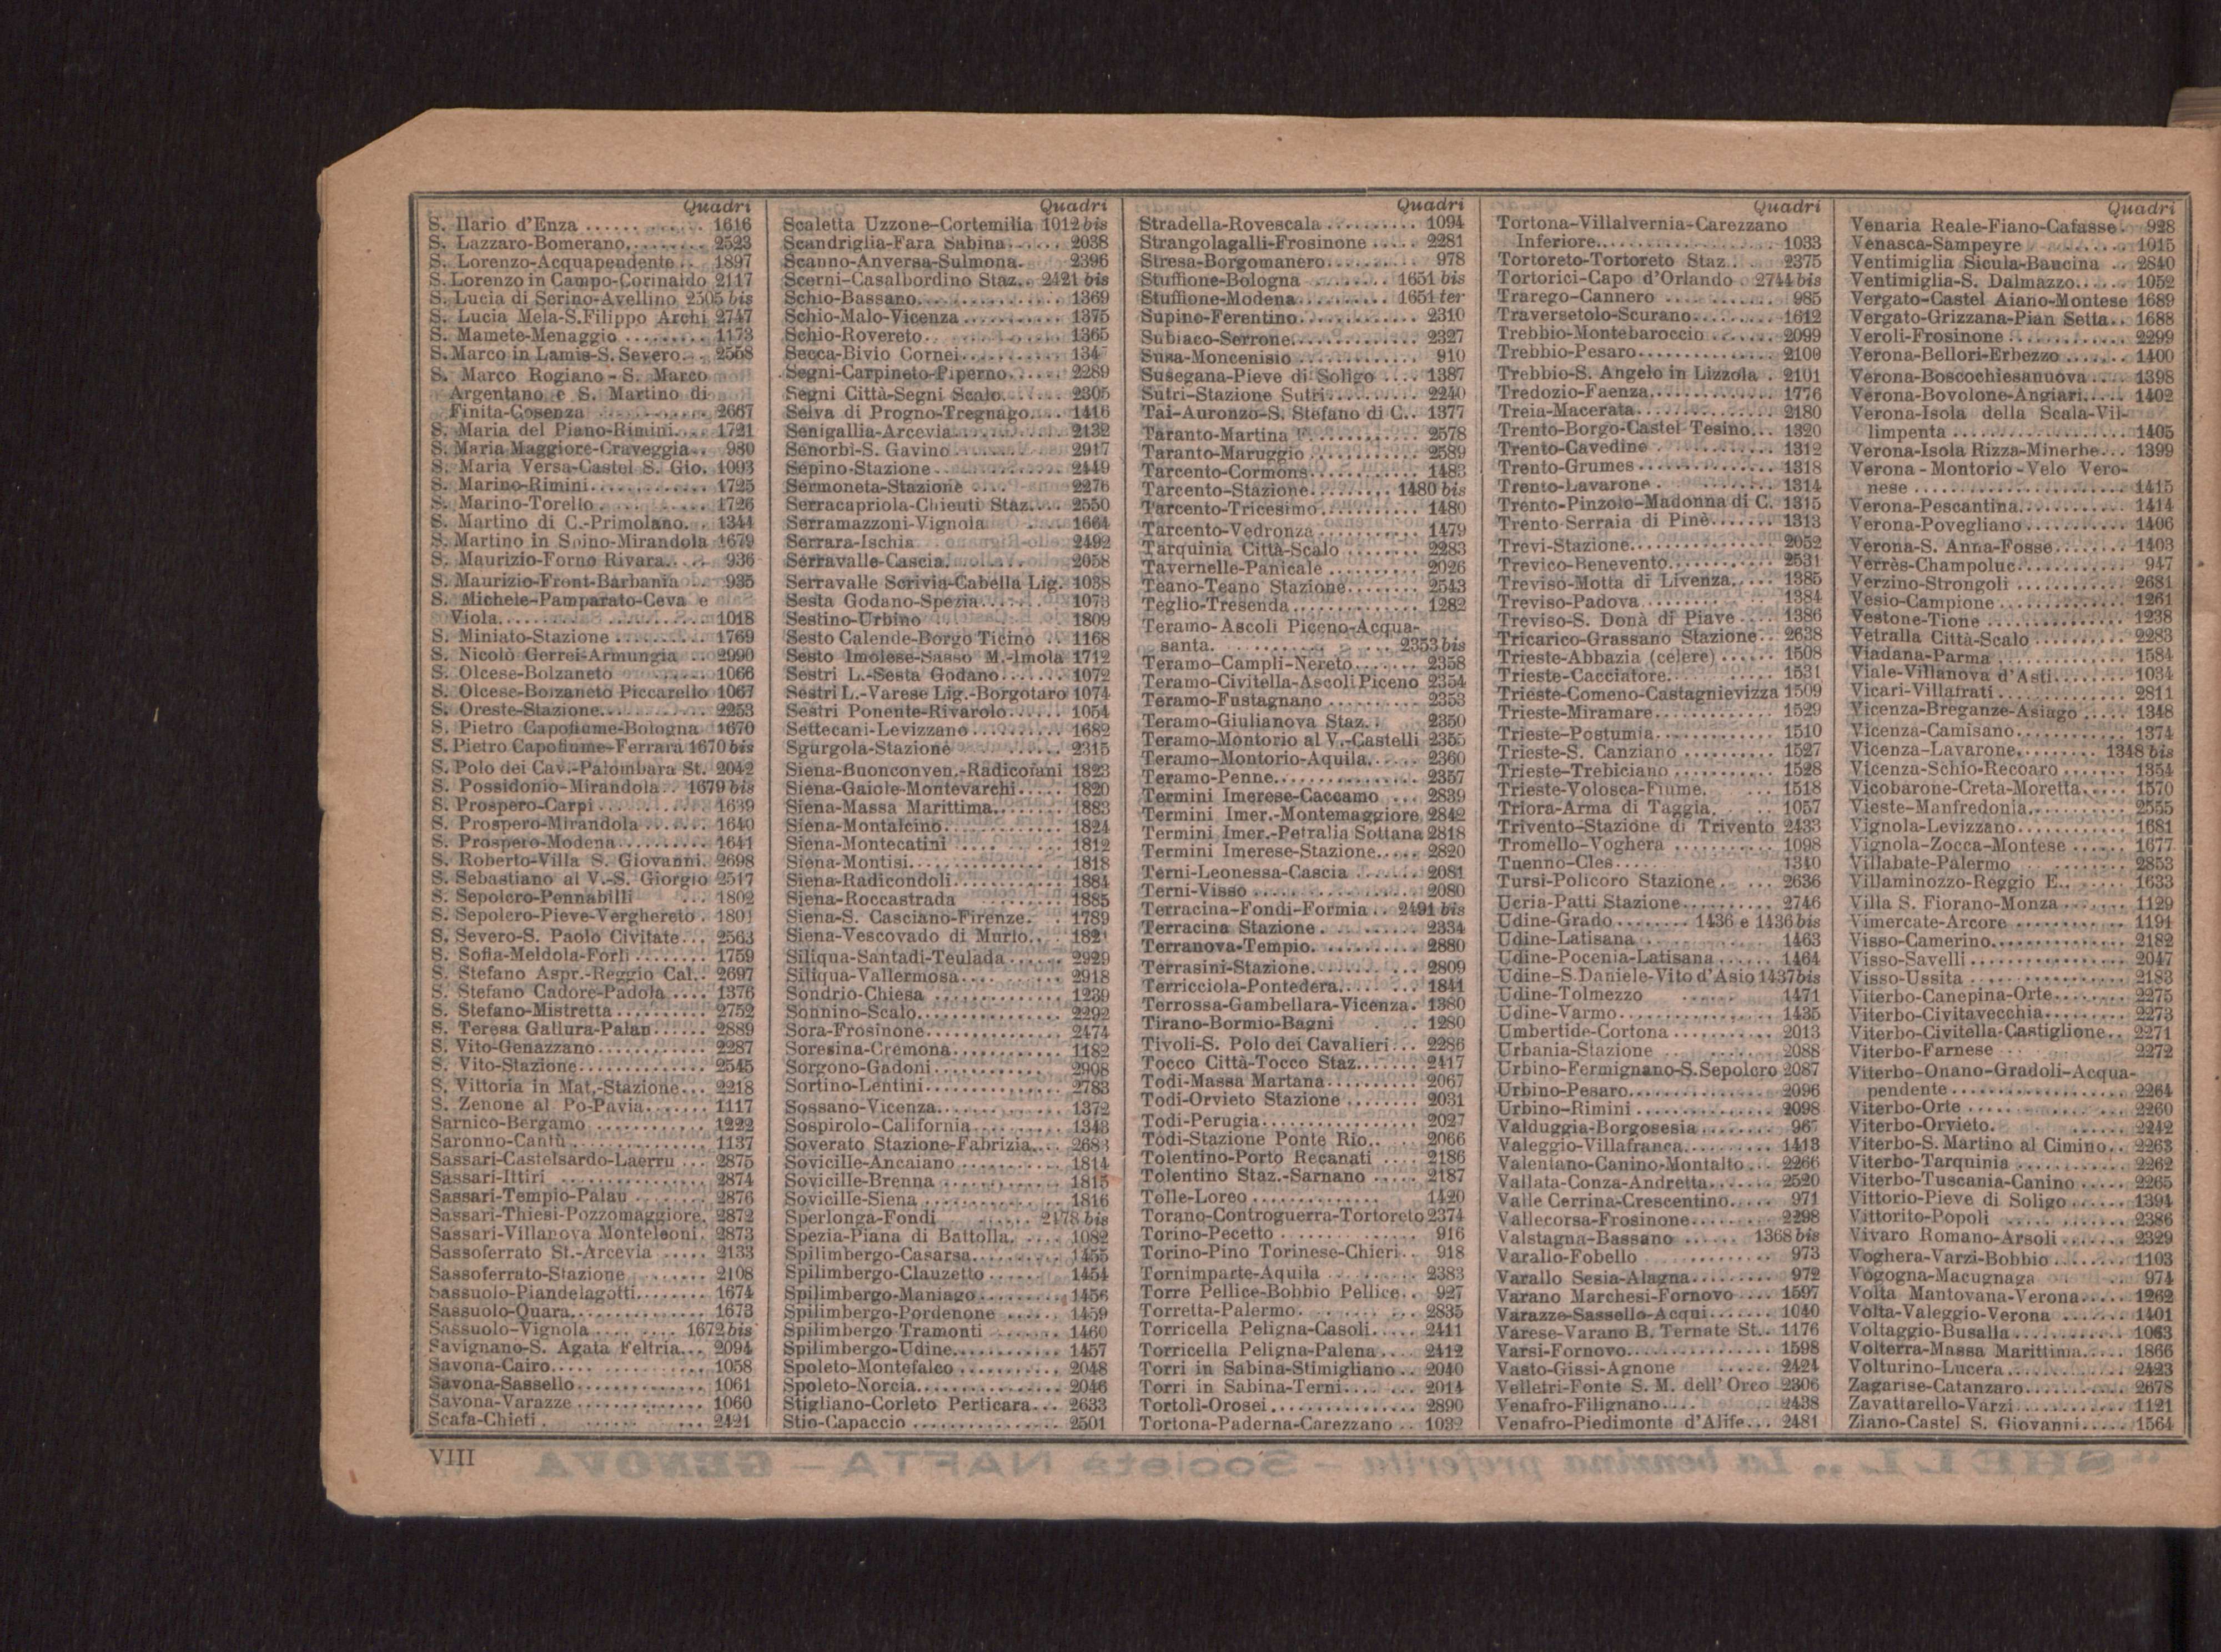 Quadri
S. Ilario d'Enza ...... 1616
S. Lazzaro-Bomerano ...... 2523
S. Lorenzo-Acquapendente .. 1897
S. Lorenzo in Campo-Corinaldo 2117
S. Lucia di Serino-Avellino 2505 bis
S. Lucia Mela-S.Filippo Archi 2747
S. Mamete-Menaggio ...... 1173
S. Marco in Lamis-S. Severo ... 2558
S. Marco Rogiano - S. Marco
Argentano e S. Martino di
Finita-Cosenza ...... 2667
S. Maria del Piano-Rimini ... 1721
S. Maria Maggiore-Craveggia .. 980
S. Maria Versa-Castel S. Gio. 1093
S. Marino-Rimini ...... 1725
S. Marino-Torello ...... 1726
S. Martino di C.-Primolano .. 1344
S. Martino in Spino-Mirandola 1679
S. Maurizio-Forno Rivara .. 936
S. Maurizio-Front-Barbania .. 935
S. Michele-Pamparato-Ceva e
Viola ...... 1018
S. Miniato-Stazione ...... 1769
S. Nicolò Gerrei-Armungia .. 2990
S. Olcese-Bolzaneto ...... 1066
S. Olcese-Bolzaneto Piccarello 1067
S. Oreste-Stazione ...... 2253
S. Pietro Capofiume-Bologna 1670
S. Pietro Capofiume-Ferrara 1670 bis
S. Polo dei Cav.-Palombara St. 2042
S. Possidonio-Mirandola .. 1679 bis
S. Prospero-Carpi ...... 1639
S. Prospero-Mirandola ...... 1640
S. Prospero-Modena ...... 1641
S. Roberto-Villa S. Giovanni. 2698
S. Sebastiano al V.-S. Giorgio 2517
S. Sepolcro-Pennabilli ... 1802
S. Sepolcro-Pieve-Verghereto . 1801
S. Severo-S. Paolo Civitate ... 2563
S. Sofia-Meldola-Forlì ...... 1759
S. Stefano Aspr.-Reggio Cal. . 2697
S. Stefano Cadore-Padola .... 1376
S. Stefano-Mistretta ...... 2752
S. Teresa Gallura-Palau ...... 2889
S. Vito-Genazzano ...... 2287
S. Vito-Stazione ...... 2545
S. Vittoria in Mat.-Stazione ... 2218
S. Zenone al Po-Pavia ...... 1117
Sarnico-Bergamo ...... 1222
Saronno-Cantù ...... 1137
Sassari-Castelsardo-Laerru ... 2875
Sassari-Ittiri ...... 2874
Sassari-Tempio-Palau ...... 2876
Sassari-Thiesi-Pozzomaggiore. 2872
Sassari-Villanova Monteleoni. 2873
Sassoferrato St.-Arcevia ..... 2133
Sassoferrato-Stazione ...... 2108
Sassuolo-Piandelagotti ...... 1674
Sassuolo-Quara ...... 1673
Sassuolo-Vignola ...... 1672 bis
Savignano-S. Agata Feltria ... 2094
Savona-Cairo ...... 1058
Savona-Sassello ...... 1061
Savona-Varazze ...... 1060
Scafa-Chieti ...... 2421
Quadri
Scaletta Uzzone-Cortemilia 1012 bis
Scandriglia-Fara Sabina ..... 2038
Scanno-Anversa-Sulmona . 2396
Scerni-Casalbordino Staz. . 2421 bis
Schio-Bassano ...... 1369
Schio-Malo-Vicenza ...... 1375
Schio-Rovereto ...... 1365
Secca-Bivio Cornei ...... 134
Segni-Carpineto-Piperno ..... 2289
Segni Città-Segni Scalo .... 2305
Selva di Progno-Tregnago ... 1416
Senigallia-Arcevia ...... 2132
Senorbì-S. Gavino ...... 2917
Sepino-Stazione ...... 2449
Sermoneta-Stazione .... 2276
Serracapriola-Chieuti Staz. ... 2550
Serramazzoni-Vignola .... 1664
Serrara-Ischia 2492
Serravalle-Cascia ...... 2058
Serravalle Scrivia-Cabella Lig. 1038
Sesta Godano-Spezia ...... 1073
Sestino-Urbino ...... 1809
Sesto Calende-Borgo Ticino .. 1168
Sesto Imolese-Sasso M.-Imola 1712
Sestri L.-Sesta Godano ...... 1072
Sestri L.-Varese Lig.-Borgotaro 1074
Sestri Ponente-Rivarolo ...... 1054
Settecani-Levizzano ...... 1682
Sgurgola-Stazione ...... 2315
Siena-Buonconven.-Radicofani 1823
Siena-Gaiole-Montevarchi ... 1820
Siena-Massa Marittima ...... 1883
Siena-Montalcino ...... 1824
Siena-Montecatini ...... 1812
Siena-Montisi ...... 1818
Siena-Radicondoli ...... 1884
Siena-Roccastrada ...... 1885
Siena-S. Casciano-Firenze . 1789
Siena-Vescovado di Murlo .. 1821
Siliqua-Santadi-Teulada ...... 2929
Siliqua-Vallermosa ...... 2918
Sondrio-Chiesa ...... 1239
Sonnino-Scalo ...... 2292
Sora-Frosinone ...... 2474
Soresina-Cremona ...... 1182
Sorgono-Gadoni ...... 2908
Sortino-Lentini ...... 2783
Sossano-Vicenza ...... 1372
Sospirolo-California ...... 1343
Soverato Stazione-Fabrizia ... 2683
Sovicille-Ancaiano ...... 1814
Sovicille-Brenna ...... 1815
Sovicille-Siena ...... 1816
Sperlonga-Fondi ...... 2478 bis
Spezia-Piana di Battolla .... 1082
Spilimbergo-Casarsa ...... 1455
Spilimbergo-Clauzetto ...... 1454
Spilimbergo-Maniago ...... 1456
Spilimbergo-Pordenone ...... 1459
Spilimbergo Tramonti ...... 1460
Spilimbergo-Udine ...... 1457
Spoleto-Montefalco ...... 2048
Spoleto-Norcia ...... 2046
Stigliano-Corleto Perticara ... 2633
Stio-Capaccio ...... 2501
Quadri
Stradella-Rovescala ...... 1094
Strangolagalli-Frosinone ..... 2281
Stresa-Borgomanero ...... 978
Stuffione-Bologna ...... 1651 bis
Stuffione-Modena ...... 1651 ter
Supino-Ferentino ...... 2310
Subiaco-Serrone ...... 2327
Susa-Moncenisio ...... 910
Susegana-Pieve di Soligo .... 1387
Sutri-Stazione Sutri ...... 2240
Tai-Auronzo-S. Stefano di C. . 1377
Taranto-Martina F. ...... 2578
Taranto-Maruggio ...... 2589
Tarcento-Cormons ...... 1483
Tarcento-Stazione ...... 1480 bis
Tarcento-Tricesimo ...... 1480
Tarcento-Vedronza ...... 1479
Tarquinia Città-Scalo ...... 2283
Tavernelle-Panicale ...... 2026
Teano-Teano Stazione ...... 2543
Teglio-Tresenda ...... 1282
Teramo-Ascoli Piceno-Acqua-
santa ...... 2353 bis
Teramo-Campli-Nereto ...... 2358
Teramo-Civitella-Ascoli Piceno 2354
Teramo-Fustagnano ...... 2353
Teramo-Giulianova Staz. . 2350
Teramo-Montorio al V.-Castelli 2355
Teramo-Montorio-Aquila ..... 2360
Teramo-Penne ...... 2357
Termini Imerese-Caccamo ... 2839
Termini Imer.-Montemaggiore 2842
Termini Imer.-Petralia Sottana 2818
Termini Imerese-Stazione ..... 2820
Terni-Leonessa-Cascia ...... 2081
Terni-Visso ...... 2080
Terracina-Fondi-Formia .. 2491 bis
Terracina Stazione ...... 2334
Terranova-Tempio ...... 2880
Terrasini-Stazione ...... 2809
Terricciola-Pontedera ...... 1841
Terrossa-Gambellara-Vicenza . 1380
Tirano-Bormio-Bagni ... 1280
Tivoli-S. Polo dei Cavalieri ... 2286
Tocco Città-Tocco Staz. ...... 2417
Todi-Massa Martana ...... 2067
Todi-Orvieto Stazione ...... 2031
Todi-Perugia ...... 2027
Todi-Stazione Ponte Rio .. 2066
Tolentino-Porto Recanati .... 2186
Tolentino Staz.-Sarnano ..... 2187
Tolle-Loreo ...... 1420
Torano-Controguerra-Tortoreto 2374
Torino-Pecetto ...... 916
Torino-Pino Torinese-Chieri .. 918
Tornimparte-Aquila ...... 2383
Torre Pellice-Bobbio Pellice .. 927
Torretta-Palermo ...... 2835
Torricella Peligna-Casoli ..... 2411
Torricella Peligna-Palena .... 2412
Torri in Sabina-Stimigliano .. 2040
Torri in Sabina-Terni ...... 2014
Tortolì-Orosei ...... 2890
Tortona-Paderna-Carezzano .. 1032
Quadri
Tortona-Villalvernia-Carezzano
Inferiore ...... 1033
Tortoreto-Tortoreto Staz. . 2375
Tortorici-Capo d'Orlando 2744 bis
Trarego-Cannero ...... 985
Traversetolo-Scurano ...... 1612
Trebbio-Montebaroccio ...... 2099
Trebbio-Pesaro ...... 2100
Trebbio-S. Angelo in Lizzola . 2101
Tredozio-Faenza ...... 1776
Treia-Macerata ...... 2180
Trento-Borgo-Castel Tesino ... 1320
Trento-Cavedine ...... 1312
Trento-Grumes ...... 1318
Trento-Lavarone ...... 1314
Trento-Pinzolo-Madonna di C. 1315
Trento-Serraia di Pinè ...... 1313
Trevi-Stazione ...... 2052
Trevico-Benevento ...... 2531
Treviso-Motta di Livenza ..... 1385
Treviso-Padova ...... 1384
Treviso-S. Donà di Piave .... 1386
Tricarico-Grassano Stazione .. 2638
Trieste-Abbazia (celere) ...... 1508
Trieste-Cacciatore ...... 1531
Trieste-Comeno-Castagnievizza 1509
Trieste-Miramare ...... 1529
Trieste-Postumia ...... 1510
Trieste-S. Canziano ...... 1527
Trieste-Trebiciano ...... 1528
Trieste-Volosca-Fiume ... 1518
Triora-Arma di Taggia ... 1057
Trivento-Stazione di Trivento 2433
Tromello-Voghera ...... 1098
Tuenno-Cles ...... 1340
Tursi-Policoro Stazione . ... 2636
Ucria-Patti Stazione ...... 2746
Udine-Grado ...... 1436 e 1436 bis
Udine-Latisana ...... 1463
Udine-Pocenia-Latisana ...... 1464
Udine-S.Daniele-Vito d'Asio 1437 bis
Udine-Tolmezzo ...... 1471
Udine-Varmo ...... 1435
Umbertide-Cortona ...... 2013
Urbania-Stazione ...... 2088
Urbino-Fermignano-S.Sepolcro 2087
Urbino-Pesaro ...... 2096
Urbino-Rimini ...... 2098
Valduggia-Borgosesia ......
Valeggio-Villafranca ...... 1413
Valentano-Canino-Montalto ... 2266
Vallata-Conza-Andretta ...... 2520
Valle Cerrina-Crescentino ..... 971
Vallecorsa-Frosinone ...... 2298
Valstagna-Bassano ...... 1368 bis
Varallo-Fobello ...... 973
Varallo Sesia-Alagna ...... 972
Varano Marchesi-Fornovo .... 1597
Varazze-Sassello-Acqui ...... 1040
Varese-Varano B. Ternate St. . 1176
Varsi-Fornovo ...... 1598
Vasto-Gissi-Agnone ...... 2424
Velletri-Fonte S. M. dell'Orco 2306
Venafro-Filignano ...... 2438
Venafro-Piedimonte d'Alife ... 2481
Quadri
Venaria Reale-Fiano-Cafasse . 928
Venasca-Sampeyre ...... 1015
Ventimiglia Sicula-Baucina .. 2840
Ventimiglia-S. Dalmazzo ..... 1052
Vergato-Castel Aiano-Montese 1689
Vergato-Grizzana-Pian Setta .. 1688
Veroli-Frosinone ...... 2299
Verona-Bellori-Erbezzo ...... 1400
Verona-Boscochiesanuova .... 1398
Verona-Bovolone-Angiari .... 1402
Verona-Isola della Scala-Vil-
limpenta ...... 1405
Verona-Isola Rizza-Minerbe ... 1399
Verona - Montorio - Velo Vero-
nese ...... 1415
Verona-Pescantina ...... 1414
Verona-Povegliano ...... 1406
Verona-S. Anna-Fosse ...... 1403
Verrès-Champoluc ...... 947
Verzino-Strongoli ...... 2681
Vesio-Campione ...... 1261
Vestone-Tione ...... 1238
Vetralla Città-Scalo ...... 2283
Viadana-Parma ...... 1584
Viale-Villanova d'Asti ...... 1034
Vicari-Villafrati ...... 2811
Vicenza-Breganze-Asiago ..... 1348
Vicenza-Camisano ...... 1374
Vicenza-Lavarone ...... 1348 bis
Vicenza-Schio-Recoaro ...... 1354
Vicobarone-Creta-Moretta ..... 1570
Vieste-Manfredonia ...... 2555
Vignola-Levizzano ...... 1681
Vignola-Zocca-Montese ...... 1677
Villabate-Palermo ...... 2853
Villaminozzo-Reggio E. ...... 1633
Villa S. Fiorano-Monza ...... 1129
Vimercate-Arcore ...... 1194
Visso-Camerino ...... 2182
Visso-Savelli ...... 2047
Visso-Ussita ...... 2183
Viterbo-Canepina-Orte ...... 2275
Viterbo-Civitavecchia ...... 2273
Viterbo-Civitella-Castiglione .. 2271
Viterbo-Farnese ...... 2272
Viterbo-Onano-Gradoli-Acqua-
pendente ...... 2264
Viterbo-Orte ...... 2260
Viterbo-Orvieto ...... 2242
Viterbo-S. Martino al Cimino .. 2263
Viterbo-Tarquinia ...... 2262
Viterbo-Tuscania-Canino ..... 2265
Vittorio-Pieve di Soligo ...... 1394
Vittorito-Popoli ...... 2386
Vivaro Romano-Arsoli ...... 2329
Voghera-Varzi-Bobbio ...... 1103
Vogogna-Macugnaga ...... 974
Volta Mantovana-Verona ..... 1262
Volta-Valeggio-Verona ...... 1401
Voltaggio-Busalla ...... 1063
Volterra-Massa Marittima ..... 1866
Volturino-Lucera ...... 2423
Zagarise-Catanzaro ...... 2678
Zavattarello-Varzi ...... 1121
Ziano-Castel S. Giovanni ..... 1564
VIII